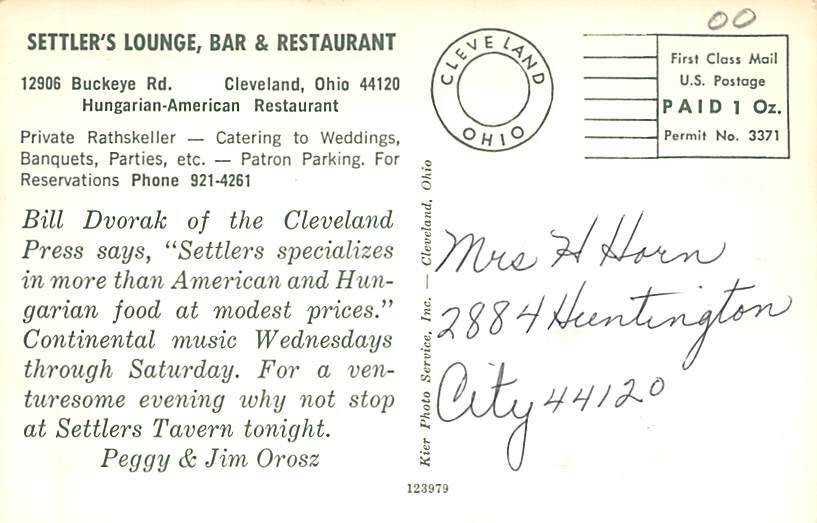 SETTLER'S LOUNGE, BAR & RESTAURANT
12906 Buckeye Rd. Cleveland, Ohio 44120
Hungarian-American Restaurant
Private Rathskeller — Catering to Weddings,
Banquets, Parties, etc. — Patron Parking. For
Reservations Phone 921-4261
Bill Dvorak of the Cleveland
Press says, "Settlers specializes
in more than American and Hun-
garian food at modest prices."
Continental music Wednesdays
through Saturday. For a ven-
turesome evening why not stop
at Settlers Tavern tonight.
Peggy & Jim Orosz
Kier Photo Service, Inc. — Cleveland, Ohio
123979
CLEVELAND
OHIO
00
First Class Mail
U.S. Postage
PAID 1 Oz.
Permit No. 3371
Mrs H Horn
2884 Huntington
City 44120